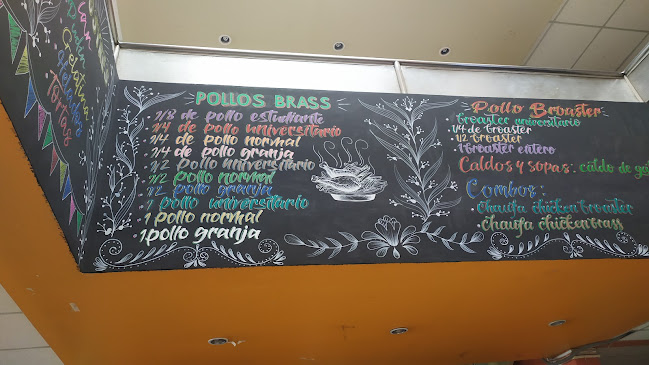 Gelatina
Helados
Tortas
POLLOS BRASS
1/8 de pollo estudiante
1/4 de pollo universitario
1/4 de pollo normal
1/4 de pollo granja
1/2 pollo universitario
1/2 pollo normal
1/2 pollo granja
1 pollo universitario
1 pollo normal
1 pollo granja
Pollo Broaster
broaster universitario
1/4 de broaster
1/2 broaster
1 broaster entero
Caldos y sopas: caldo de
Combos:
chaufa chicken broaster
chaufa chicken brass